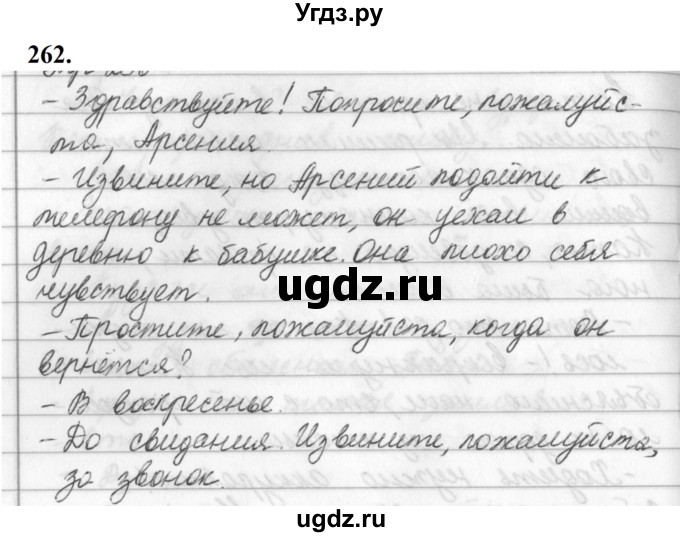 Угдз.ру
262.
- Здравствуйте! Попросите, пожалуйс-
та, Арсения.
- Извините, но Арсений подойти к
телефону не может, он уехал в
деревню к бабушке. Она плохо себя
чувствует.
ugdz.ru
- Простите, пожалуйста, когда он
вернётся?
- В воскресенье.
- До свидания. Извините, пожалуйста,
за звонок.
ugdz.ru